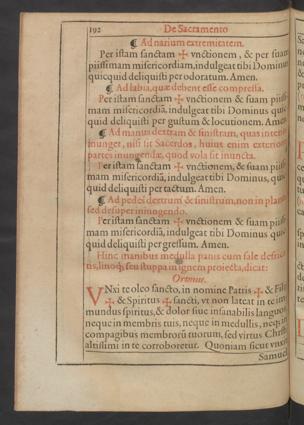 192 De Sacramento
¶ Ad narium extremitatem.
Per istam sanctam ✠ vnctionem, & per suam
piissimam misericordiam, indulgeat tibi Dominus
quicquid deliquisti per odoratum. Amen.
¶ Ad labia, quæ debent esse compressa.
Per istam sanctam ✠ vnctionem & suam piissi-
mam misericordiã, indulgeat tibi Dominus quic
quid deliquisti per gustum & locutionem. Amen.
¶ Ad manus dextram & sinistram, quas interius
inunget, nisi sit Sacerdos, huius enim exteriori
partes inungendæ, quod vola sit inuncta.
Per istam sanctam ✠ vnctionem, & suam piissi-
mam misericordiã, indulgeat tibi Dominus, quic
quid deliquisti per tactum. Amen.
¶ Ad pedes dextrum & sinistrum, non in planta
sed desuper inungendo.
Per istam sanctam ✠ vnctionem & suam piissi-
mam misericordiã, indulgeat tibi Dominus quic-
quid deliquisti per gressum. Amen.
Hinc manibus medulla panis cum sale
seu stuppa in ignem proiecta, dicat:
Oremus.
VNxi te oleo sancto, in nomine Patris ✠ & Filij
✠ & Spiritus ✠ sancti, vt non lateat in te im-
mundus spiritus, &
neque in membris tuis, neque in medullis, neque in
compagibus membrorũ tuorum, sed virtus Christi
altissimi in te corroboretur. Quoniam sicut vnxit
Samuel